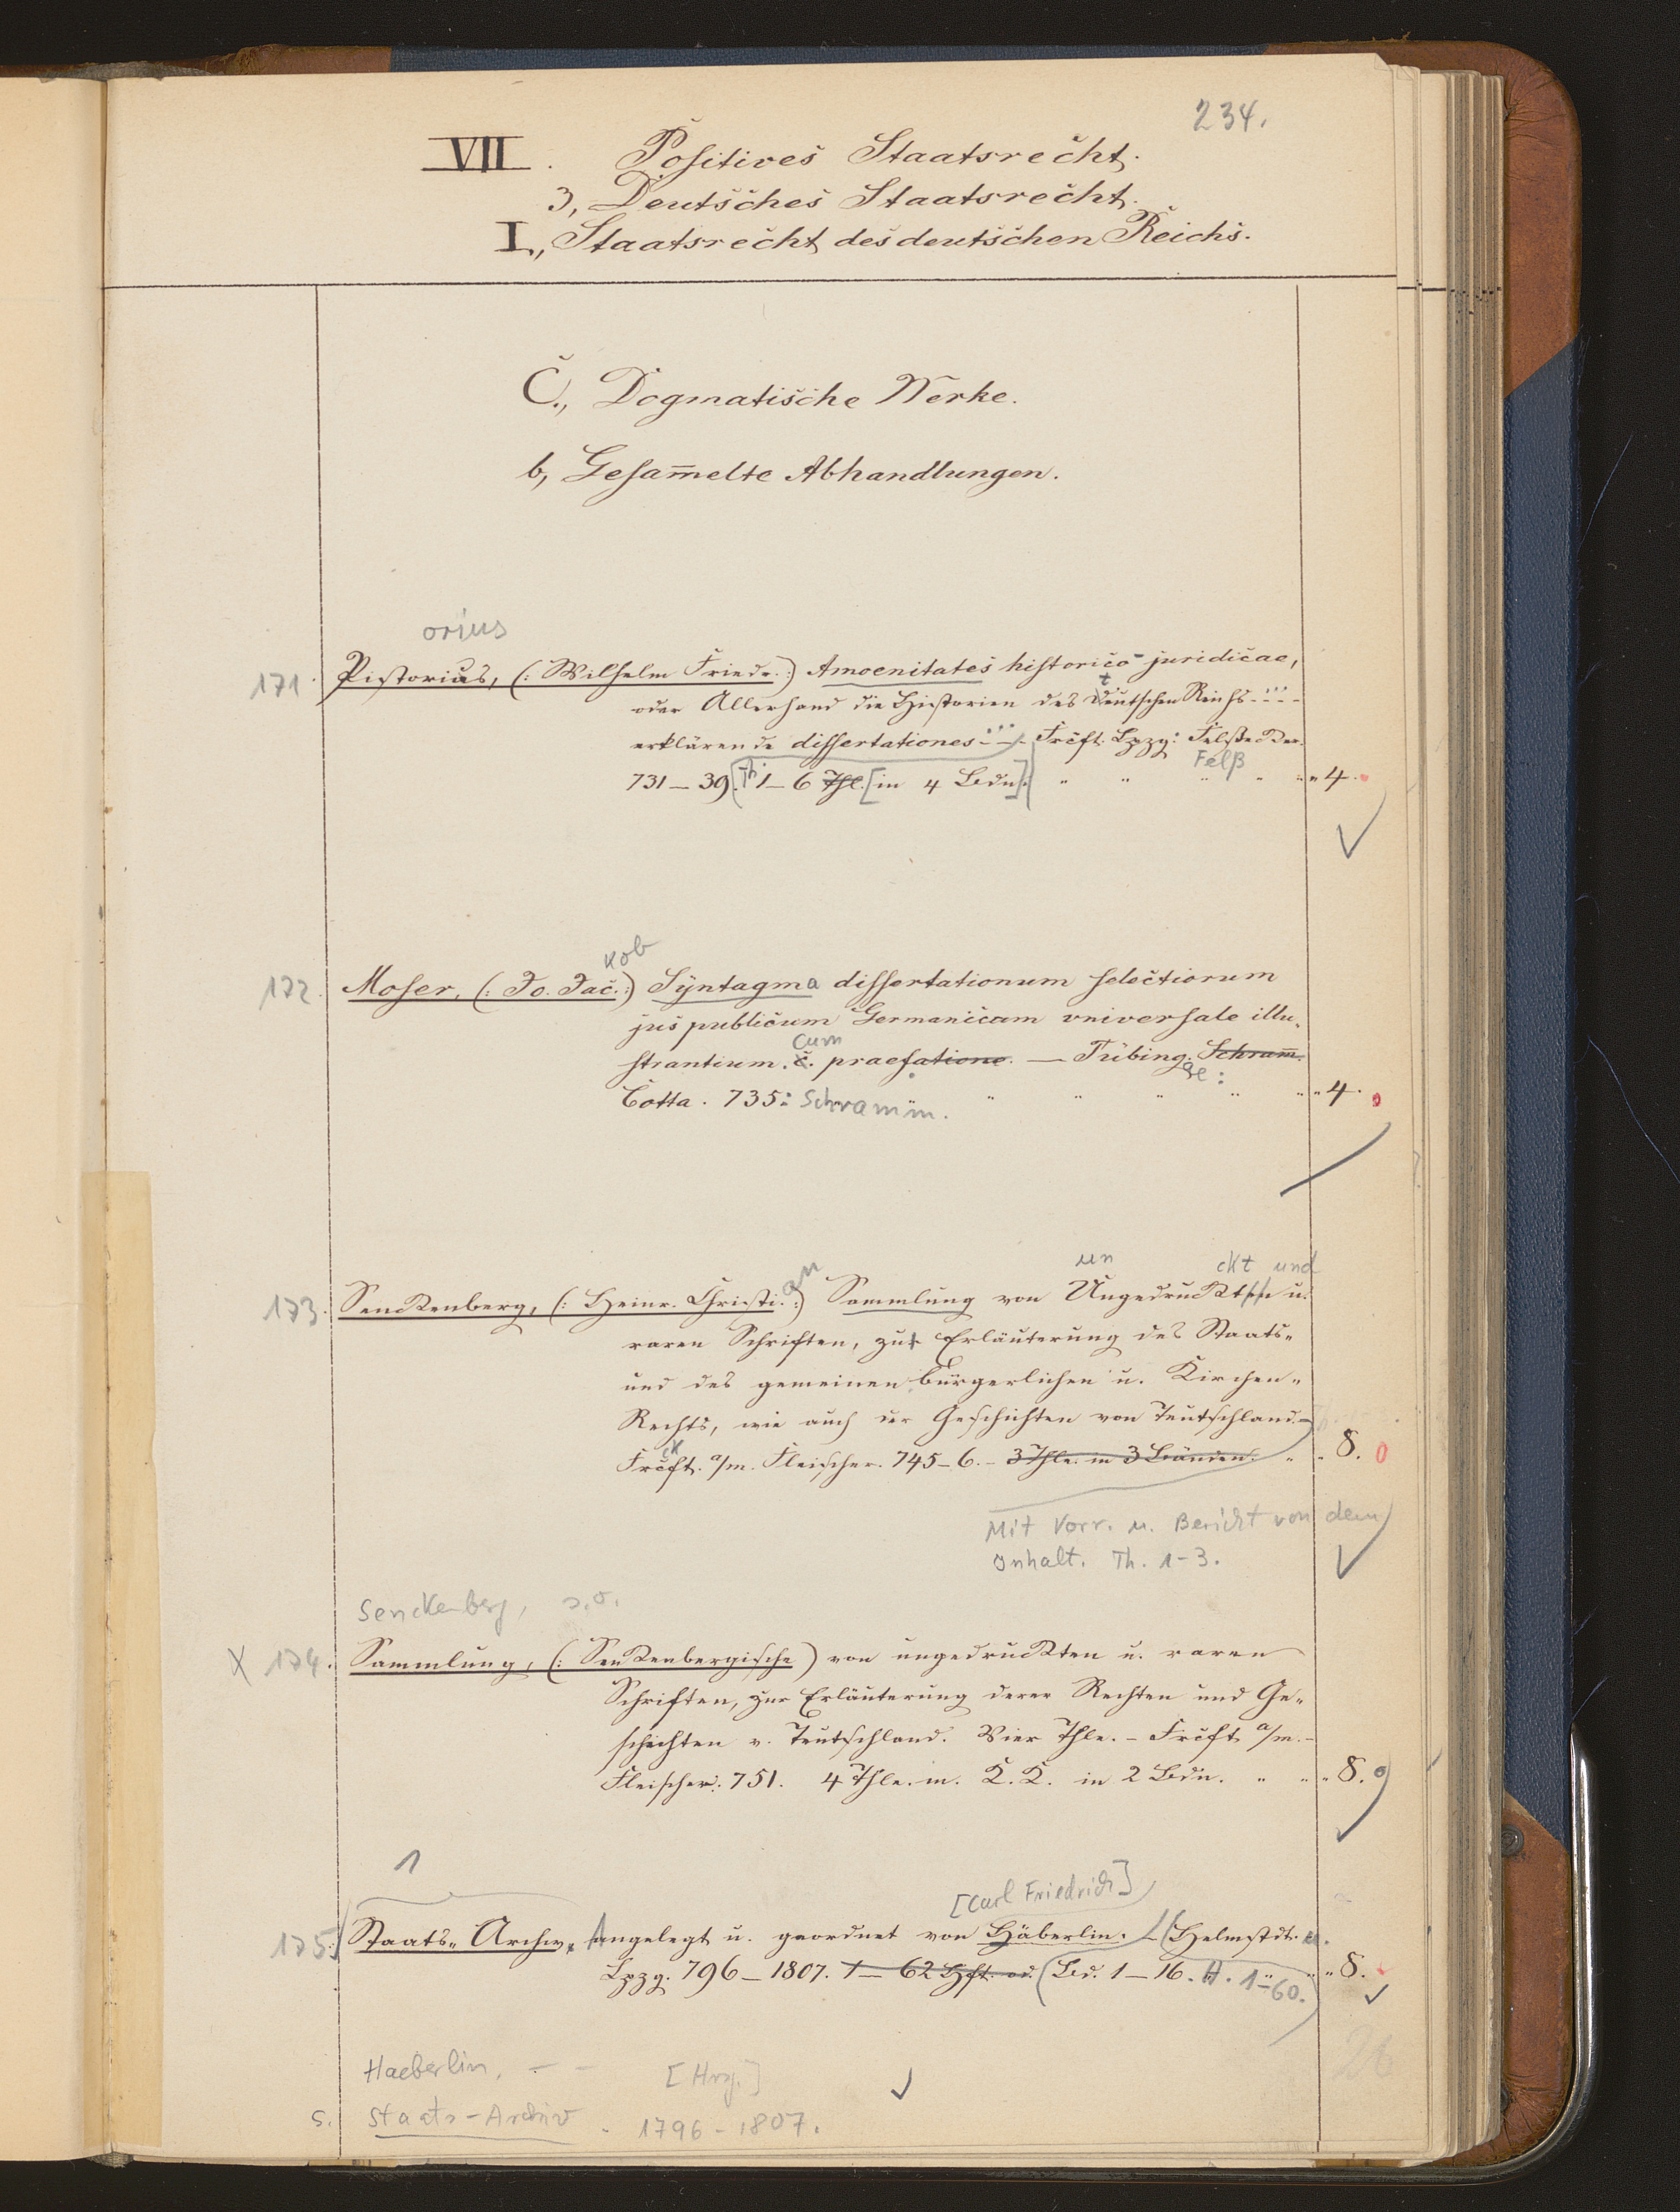 234.
VII. Positives Staatsrecht.
3, Deutsches Staatsrecht.
I., Staatsrecht des deutschen Reichs.
C., Dogmatische Werke.
b, Gesam̄elte Abhandlungen.
orius
171. Pistorius, (: Wilhelm Friedr. :) Amoenitates historico-juridicae,
oder Allerhand die Historien des Deutschen Reichs
erklärende dissertationes Frcft. Lpzg: Felßecker.
Felß
731–39. Th 1–6 Thl. [in 4 Bdn]. " " " " " 4.
kob
172. Moser, (: Jo. Jac. :) Syntagma dissertationum selectiorum
jus publicum Germanicum universale illu-
cum
strantium. c. praefatione. — Tübing. Schram̄.
ae:
Cotta. 735: Schramm. " " " " " 4.
un ckt und
173. Senckenberg, (: Heinr. Christi. :) an Sammlung von Ungedruckten u.
raren Schriften, zur Erläuterung des Staats-
und des gemeinen bürgerlichen u. Kirchen-
Rechts, wie auch der Geschichten von Teutschland.
Frcft. a/m. Fleischer. 745–6. – 3 Thle. in 3 Bänden. " " 8.
Mit Vorr. u. Bericht von dem
Inhalt. Th. 1-3.
Senckenberg, s.o.
X 174. Sammlung, (: Senckenbergische) von ungedruckten u. raren
Schriften, zur Erläuterung derer Rechten und Ge-
schichten v. Teutschland. Vier Thle. – Frcft a/m. –
Fleischer. 751. 4 Thle. m. K. K. in 2 Bdn. " " " 8.
1
[Carl Friedrich]
175. Staats-Archiv, Angelegt u. geordnet von Häberlin. (Helmstdt. u.
Lpzg. 796–1807. 1–62 Hft. od. (Bd. 1–16. H. 1-60.) " 8.
26
Haeberlin, – – [Hrg.]
s. Staats-Archiv. 1796-1807.